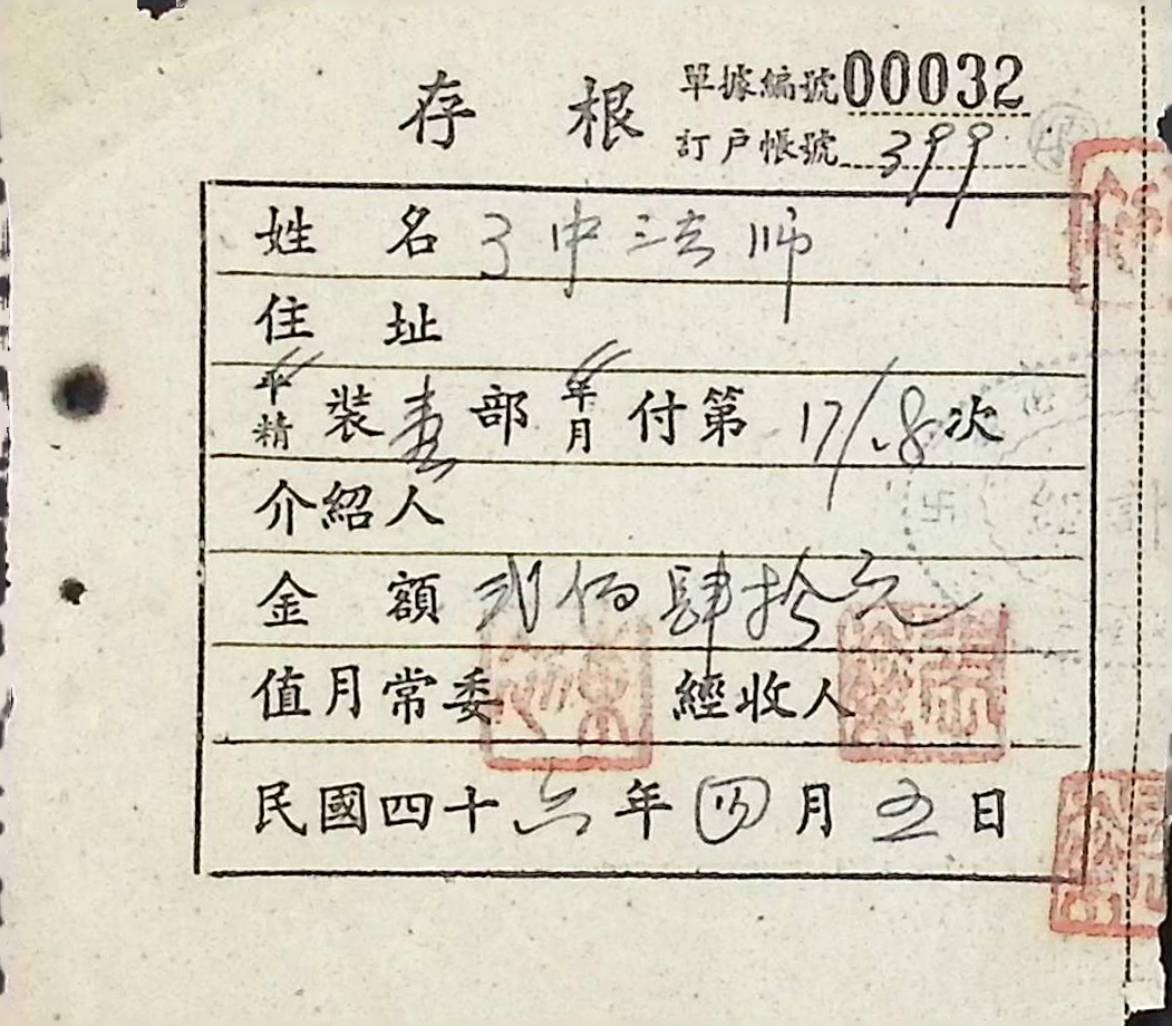 存根
單據編號00032
訂戶帳號399
姓名 了中法師
住址
平精裝壹部年月付第17/18次
介紹人
金額 貳佰肆拾元
值月常委 經收人
民國四十六年四月五日